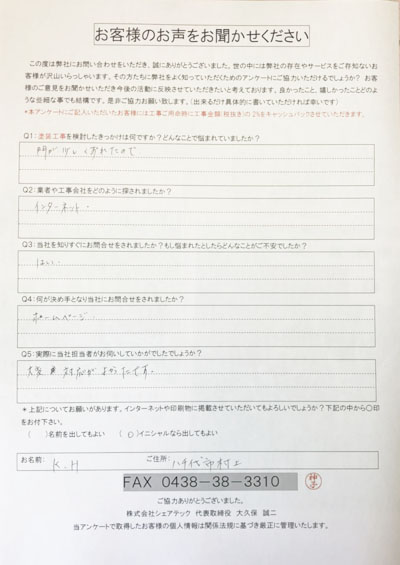 お客様のお声をお聞かせください
この度は弊社にお問い合わせをいただき、誠にありがとうございました。世の中には弊社の存在やサービスをご存知ないお
客様が沢山いらっしゃいます。その方たちに弊社をよく知っていただくためのアンケートにご協力いただけるでしょうか？ お客
様のご意見をお聞かせいただき今後の活動に反映させていただきたいと考えております。良かったこと、嬉しかったことどのよ
うな些細な事でも結構です。是非ご協力お願い致します。（出来るだけ具体的に書いていただければ幸いです）
*本アンケートにご記入いただいたお客様には工事ご用命時に工事金額(税抜き)の2%をキャッシュバックさせていただきます。
Q1：塗装工事を検討したきっかけは何ですか？どんなことで悩まれていましたか？
門が
Q2：業者や工事会社をどのように探されましたか？
インターネット.
Q3：当社を知りすぐにお問合せをされましたか？もし悩まれたとしたらどんなことがご不安でしたか？
はい.
Q4：何が決め手となり当社にお問合せをされましたか？
ホームページ.
Q5：実際に当社担当者がお伺いしていかがでしたでしょうか？
大変 対応がよかったです.
＊上記についてお願いがあります。インターネットや印刷物に掲載させていただいてもよろしいでしょうか？下記の中から〇印
をお付下さい。
（　　）名前を出してもよい　　（ O ）イニシャルなら出してもよい
お名前: K.H ご住所: 八千代市村上
FAX 0438-38-3310
ご協力ありがとうございました。
株式会社シェアテック 代表取締役 大久保 誠二
当アンケートで取得したお客様の個人情報は関係法規に基づき厳正に管理いたします。